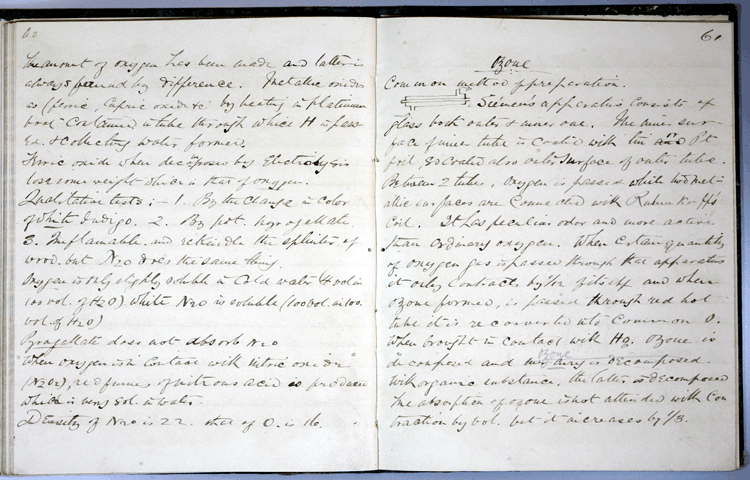 60
The amount of oxygen has been made and latter is
always found by difference. Metallic oxides
as (ferric, cupric oxide &c by heating in platinum
boat contained in tube through which H is pass
ed & collecting water formed.
Ferric oxide when decomposed by Electrolysis
lose some weight which is that of oxygen.
Qualitative tests: – 1. By the change in color
of white Indigo. 2. By pot. pyrogallate.
3. Inflamable and rekindle the splinter of
wood. but N2O does the same thing.
Oxygen is only slightly soluble in Cold water 4 vol in
100 vol. of H2O) while N2O is soluble (100 vol. in 100.
vol of H2O)
Pyrogallate does not absorb N2O
When oxygen is in Contact with nitric oxide
(N2O2), red fumes of nitrous acid is produced
which is very sol. in water.
Density of N2O is 22. that of O. is 16.
61
Ozone
Common method of preparation.
Siemens apparatus consists of
glass both outer & inner one. The inner sur-
face of inner tube is Coated with tin or Pt
foil, & coated also outer surface of outer tube.
Between 2 tubes, Oxygen is passed while two met-
allic surfaces are Connected with Ruhmkorff's
Coil. It has peculiar odor and more active
than Ordinary oxygen. When Certain quantity
of oxygen gas is passed through that apparatus
it only contract by 1/12 of itself and when
ozone formed, is passed through red hot
tube it is reconverted into Common O.
When brought in Contact with Hg. ozone is
decomposed and ozone is decomposed
with organic substance, the latter is decomposed
The absorption of ozone is not attended with Con
traction by vol. but it increases by 1/3.